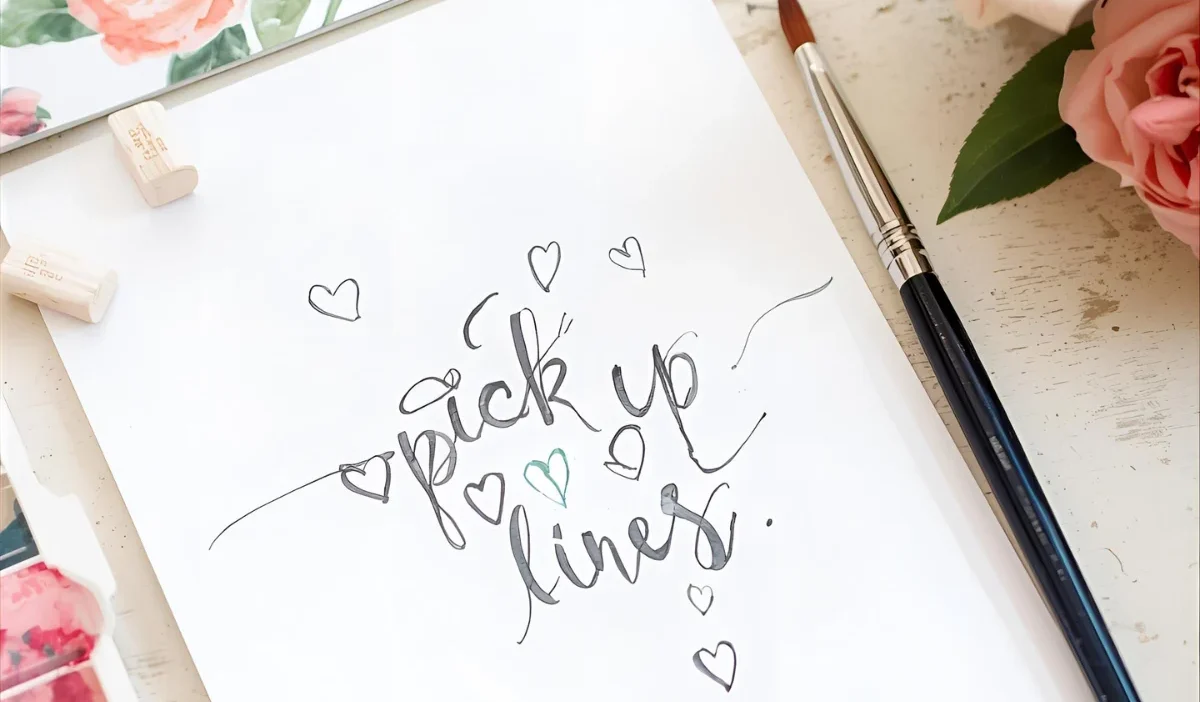 pick up
lines.